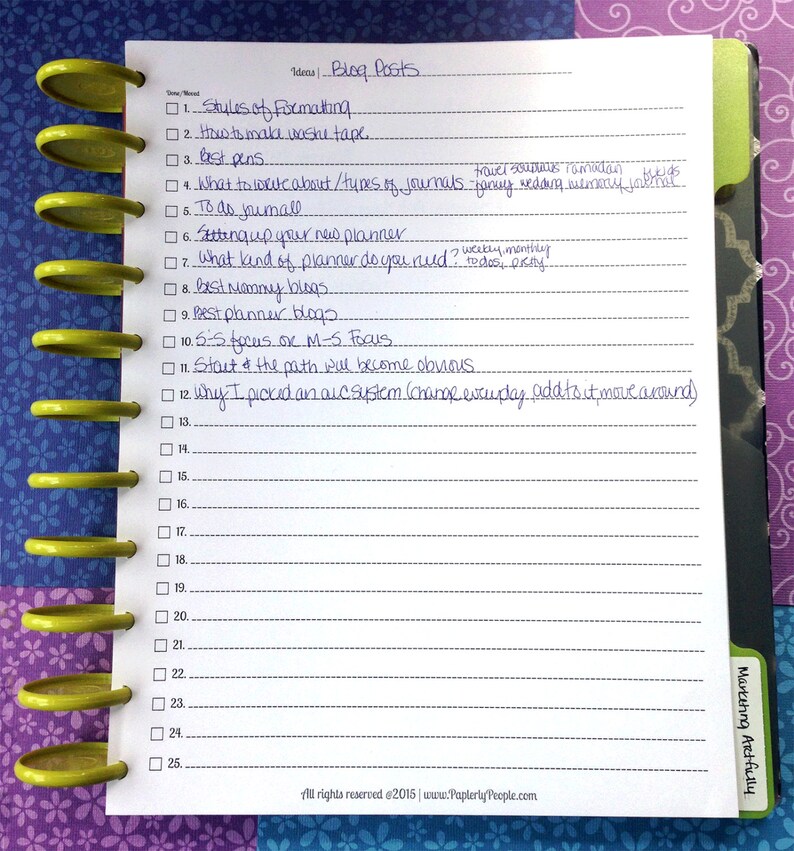 Ideas | Blog Posts
Done/Moved
1. Styles of Formatting
2. How to make washe tape
3. Best pens
travel ramadan
4. What to write about/types of journals - family wedding memory journal
5. To do journall
6. Setting up your new planner
weekly, monthly
7. What kind of planner do you need? to dos, pretty
8. Best mommy blogs
9. Best planner blogs
10. S-S focus or M-S Focus
11. Start & the path will become obvious
12. Why I picked an arc system (change everyday, add to it, move around)
13.
14.
15.
16.
17.
18.
19.
20.
21.
22.
23.
24.
25.
All rights reserved @2015 | www.PaperlyPeople.com
Marketing Artfully